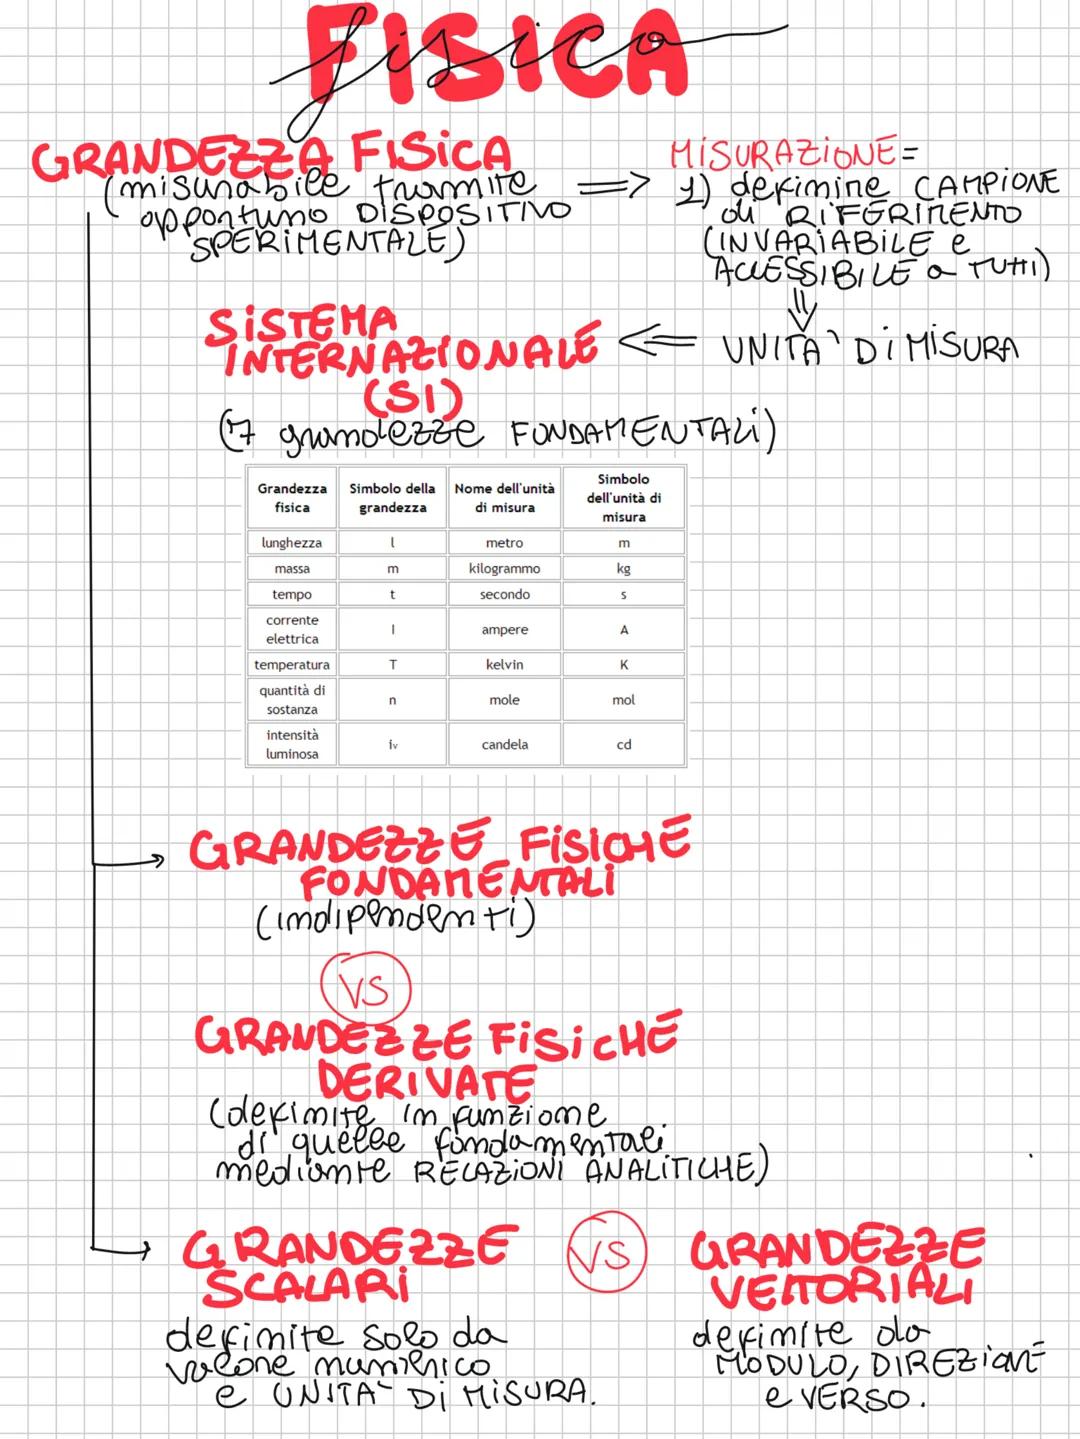 FISICA
fisica
GRANDEZZA FISICA
(misurabile tramite
opportuno DISPOSITIVO
SPERIMENTALE)
=>
MISURAZIONE=
1) definire CAMPIONE
di RIFERIMENTO
(INVARIABILE e
ACCESSIBILE a TUTTI)
UNITA' DI MISURA
SISTEMA
INTERNAZIONALE
(SI)
(7 grandezze FONDAMENTALI)
Grandezza fisica | Simbolo della grandezza | Nome dell'unità di misura | Simbolo dell'unità di misura
lunghezza | l | metro | m
massa | m | kilogrammo | kg
tempo | t | secondo | s
corrente elettrica | I | ampere | A
temperatura | T | kelvin | K
quantità di sostanza | n | mole | mol
intensità luminosa | iv | candela | cd
GRANDEZZE FISICHE
FONDAMENTALI
(indipendenti)
VS
GRANDEZZE FISICHE
DERIVATE
(definite in funzione
di quelle fondamentali
mediante RELAZIONI ANALITICHE)
GRANDEZZE
SCALARI
definite solo da
valore numerico
e UNITA' DI MISURA.
VS
GRANDEZZE
VETTORIALI
definite da
MODULO, DIREZIONE
e VERSO.